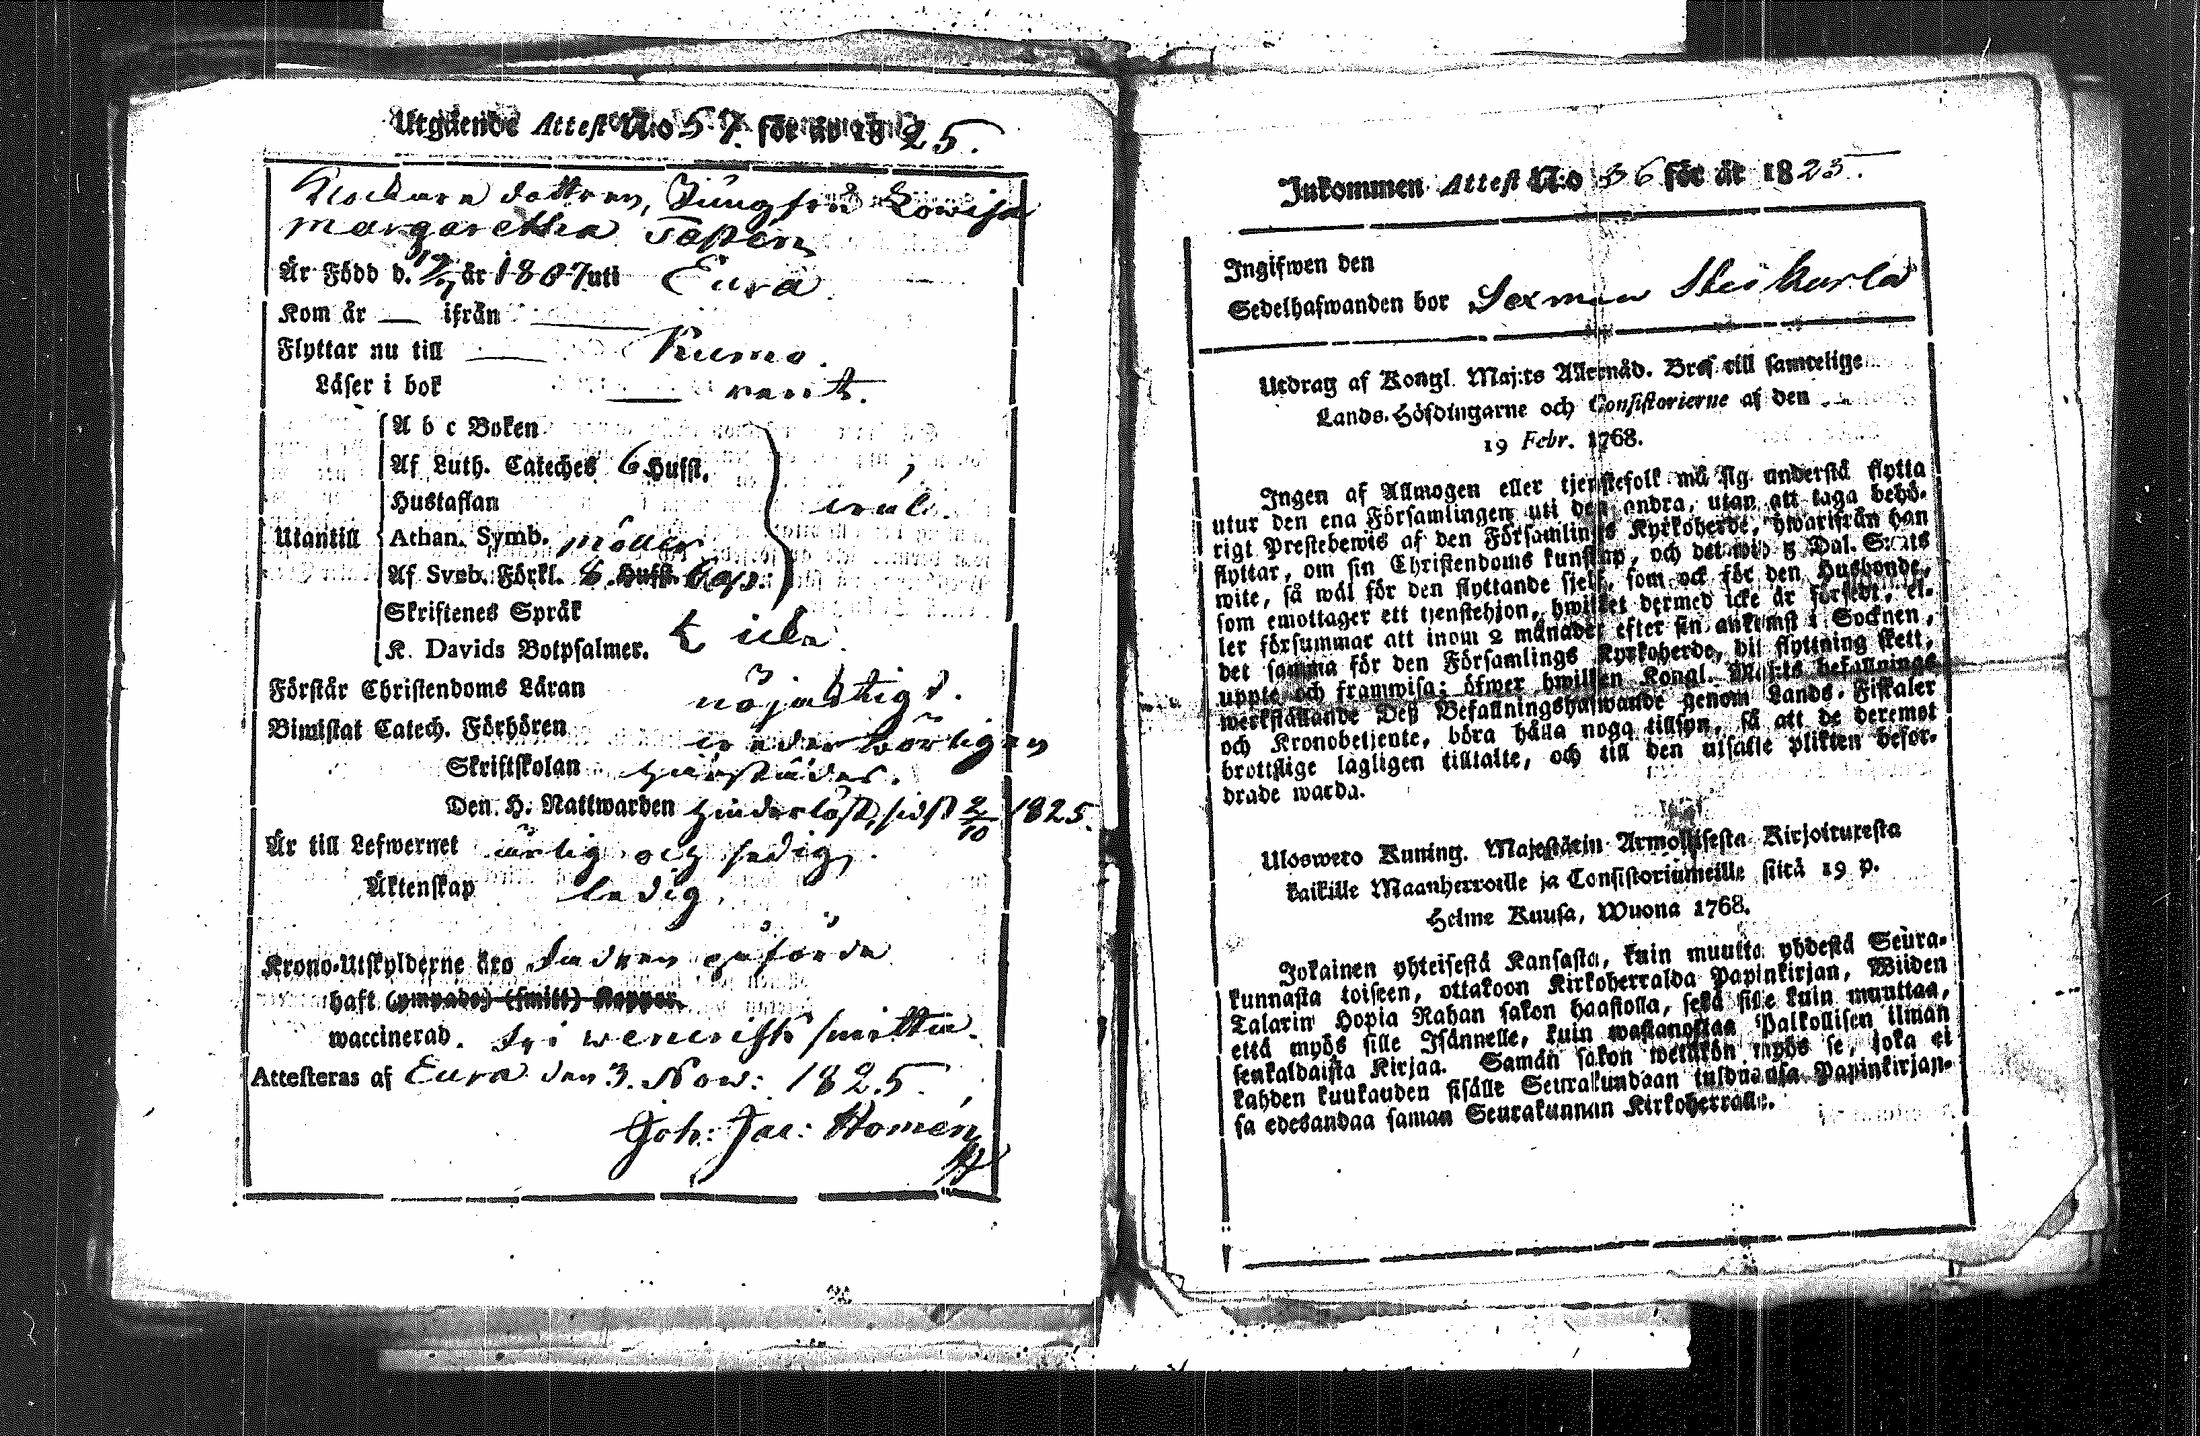 Utgående Attest N:o 57. för år 1825.
Klockare dottren, Jungfru Lowisa
Margaretha
Är Född d. år 1807 uti Eura.
Kom år — ifrån —
Flyttar nu till — Kumo.
Läser i bok — rent.
A b c Boken
Af Luth. Cateches 6 Hufst.
Hustaflan
Utantill
Athan. Symb. möller
Af Sveb. Förkl.
Skriftenes Språk
K. Davids Botpsalmer. icke
Förstår Christendoms Läran nöjaktigt.
Biwistat Catech. Förhören wederbörligen
Skriftskolan härstädes.
Den H. Nattwarden hinderlöst, sidst 2/10 1825.
Är till Lefwernet ärlig och sedig.
Äktenskap ledig.
Krono-Utskylderne äro
haft (ympade) (smitt) Koppor.
waccinerad. fri wenerisk smitta.
Attesteras af Eura den 3. Nov: 1825.
Joh: Jac: Homén
Inkommen Attest N:o 36 för år 1825.
Ingifwen den
Sedelhafwanden bor
Utdrag af Kongl. Maj:ts Allernåd. Bref till samtelige
Lands-Höfdingarne och Consistorierne af den
19 Febr. 1768.
Ingen af Allmogen eller tjenstefolk må sig understå flytta
utur den ena Församlingen uti den andra, utan att taga behö-
rigt Prestebewis af den Församlings Kyrkoherde, hwarifrån han
flyttar, om sin Christendoms kunskap, och det wid 5 Dal. S:mts
wite, så wäl för den flyttande sjelf, som ock för den Husbonde,
som emottager ett tjenstehjon, hwilket dermed icke är försedt, el-
ler försummar att inom 2 månader efter sin ankomst i Socknen,
det samma för den Församlings Kyrkoherde, dit flyttning skett,
uppte och framwisa; öfwer hwilken Kongl. Maj:ts befallnings
werkställande Deß Befallningshafwande genom Lands-Fiskaler
och Kronobetjente, böra hålla noga tillsyn, så att de deremot
brottslige lagligen tilltalte, och till den utsatte plikten befor-
drade warda.
Uloswero Kuning. Majestätin Armollisesta Kirjoituresta
kaikille Maanherroille ja Consistoriumeille siitä 19 p.
Helme Kuusa, Wuona 1768.
Jokainen yhteisestä Kansasta, kuin muutta yhdestä Seura-
kunnasta toiseen, ottakoon Kirkoherralda Papinkirjan, Wiiden
Talarin Hopia Rahan sakon haastolla, sekä sille kuin muuttaa,
että myös sille Isännelle, kuin wastanottaa Palkollisen ilman
senkaldaista Kirjaa. Samän sakon wetäkön myös se, joka ei
kahden kuukauden sisälle Seurakundaan tulduansa Papinkirjan-
sa edesandaa saman Seurakunnan Kirkoherralle.